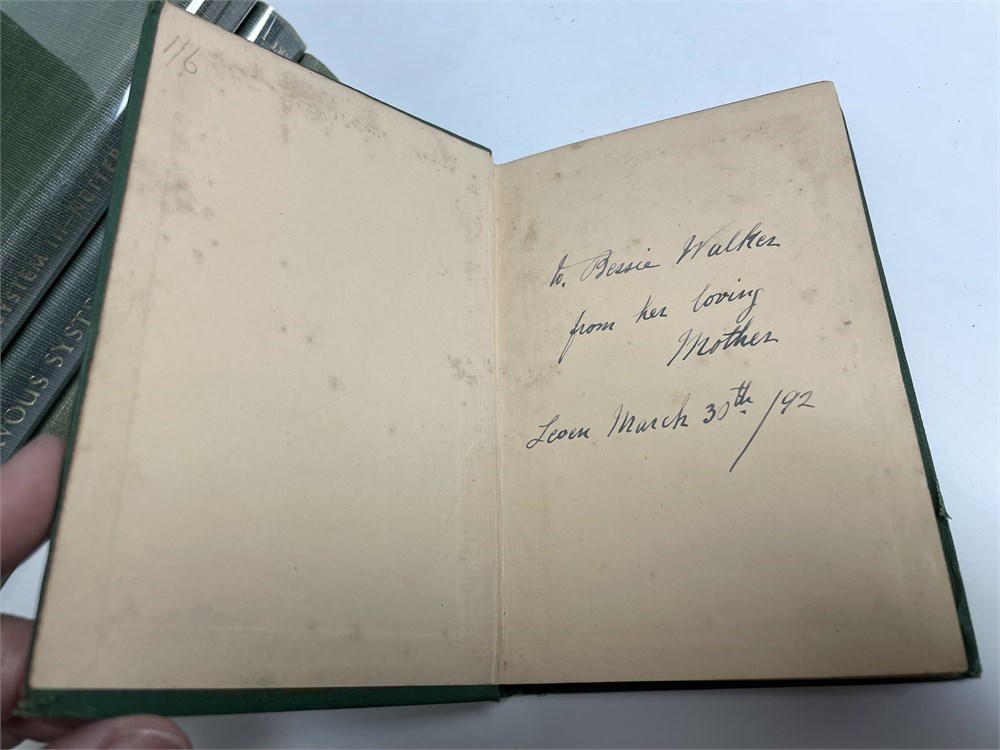 1/6
to. Bessie Walker
from her loving
Mother
Leven March 30th /92
SYSTEM II-NUTTER
VOUS SYST